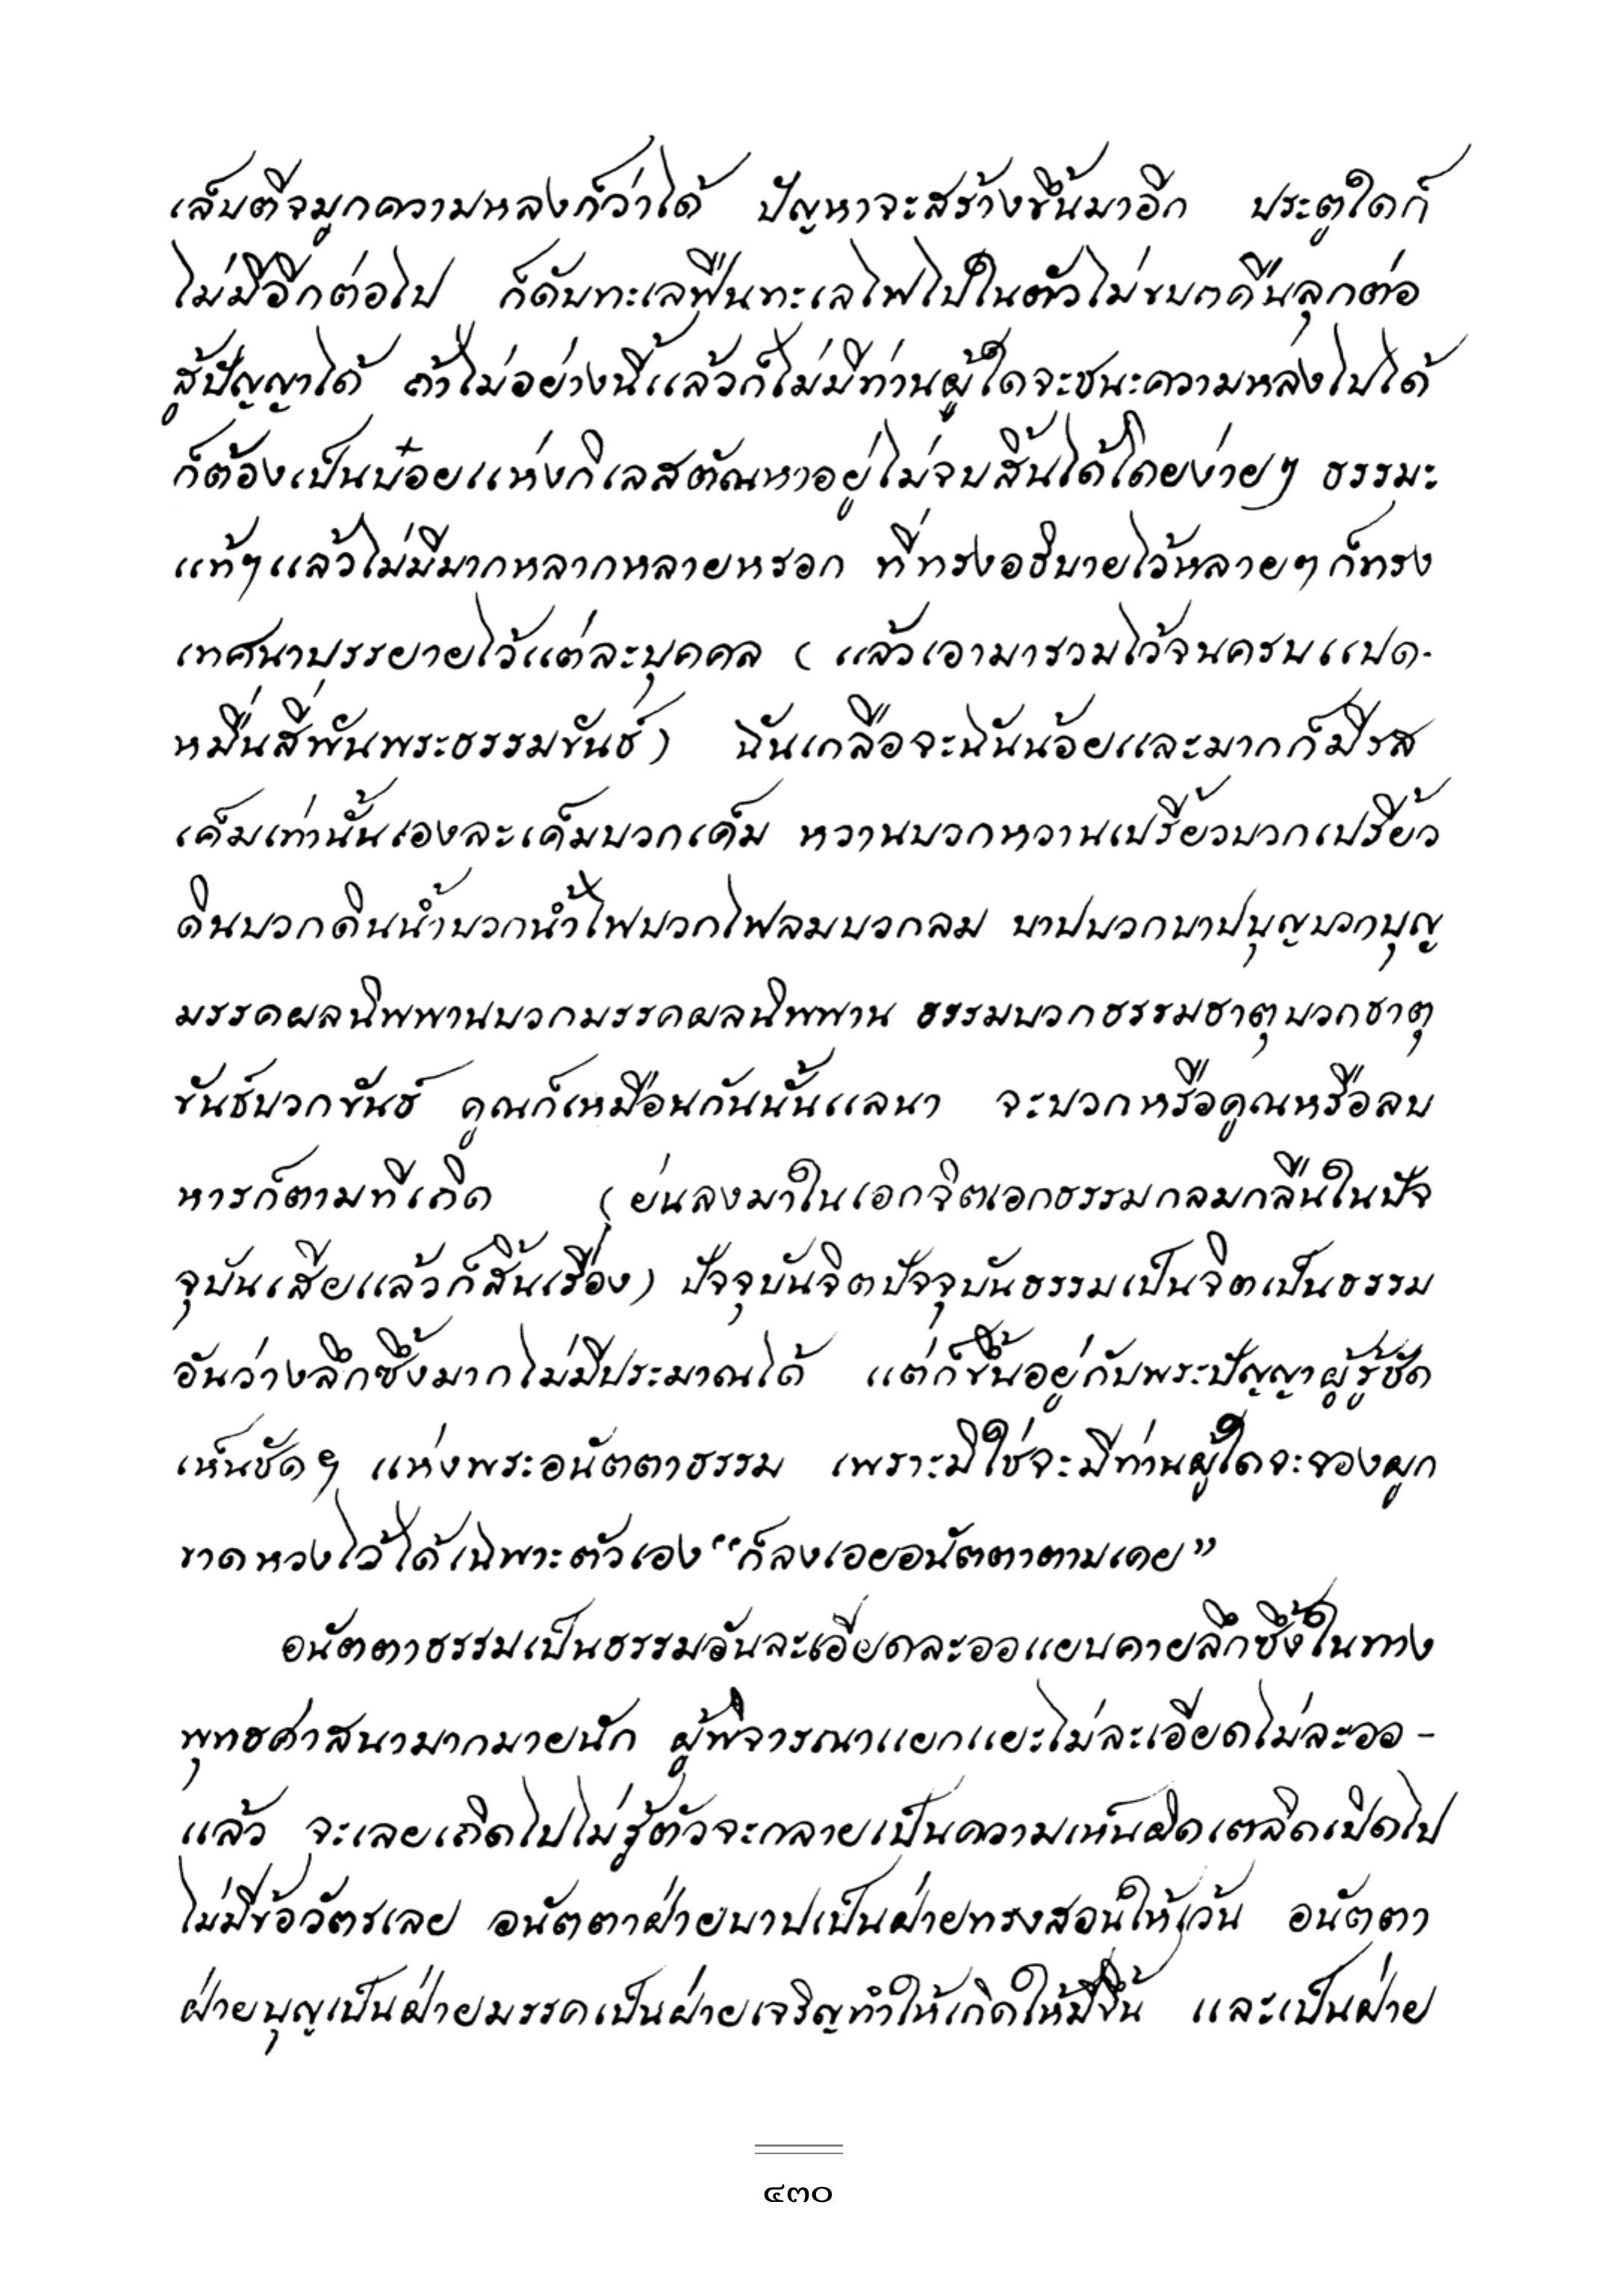 เล็บตีจมูกความหลงก็ว่าได้ ปัญหาจะสร้างขึ้นมาอีก ประตูใดก็
ไม่มีอีกต่อไป ก็ดับทะเลฟืนทะเลไฟไปในตัวไม่ขบถคืนลุกต่อ
สู้ปัญญาได้ ถ้าไม่อย่างนี้แล้วก็ไม่มีท่านผู้ใดจะชนะความหลงไปได้
ก็ต้องเป็นบ๋อยแห่งกิเลสตัณหาอยู่ไม่จบสิ้นได้โดยง่ายๆ ธรรมะ
แท้ๆแล้วไม่มีมากหลากหลายหรอก ที่ทรงอธิบายไว้หลายๆก็ทรง
เทศนาบรรยายไว้แต่ละบุคคล (แล้วเอามารวมไว้จนครบแปด-
หมื่นสี่พันพระธรรมขันธ์) ฉันเกลือจะฉันน้อยและมากก็มีรส
เค็มเท่านั้นเองละเค็มบวกเค็ม หวานบวกหวานเปรี้ยวบวกเปรี้ยว
ดินบวกดินน้ำบวกน้ำไฟบวกไฟลมบวกลม บาปบวกบาปบุญบวกบุญ
มรรคผลนิพพานบวกมรรคผลนิพพาน ธรรมบวกธรรมธาตุบวกธาตุ
ขันธ์บวกขันธ์ คูณก็เหมือนกันนั้นแลนา จะบวกหรือคูณหรือลบ
หารก็ตามทีเถิด (ย่นลงมาในเอกจิตเอกธรรมกลมกลืนในปัจ
จุบันเสียแล้วก็สิ้นเรื่อง) ปัจจุบันจิตปัจจุบันธรรมเป็นจิตเป็นธรรม
อันว่างลึกซึ้งมากไม่มีประมาณได้ แต่ก็ขึ้นอยู่กับพระปัญญาผู้รู้ชัด
เห็นชัดๆ แห่งพระอนัตตาธรรม เพราะมิใช่จะมีท่านผู้ใดจะจองผูก
ขาดหวงไว้ได้เฉพาะตัวเอง “ก็ลงเอยอนัตตาตามเคย”
อนัตตาธรรมเป็นธรรมอันละเอียดละออแยบคายลึกซึ้งในทาง
พุทธศาสนามากมายนัก ผู้พิจารณาแยกแยะไม่ละเอียดไม่ละออ -
แล้ว จะเลยเถิดไปไม่รู้ตัวจะกลายเป็นความเห็นผิดเตลิดเปิดไป
ไม่มีข้อวัตรเลย อนัตตาฝ่ายบาปเป็นฝ่ายทรงสอนให้เว้น อนัตตา
ฝ่ายบุญเป็นฝ่ายมรรคเป็นฝ่ายเจริญทำให้เกิดให้มีขึ้น และเป็นฝ่าย
๔๓๐